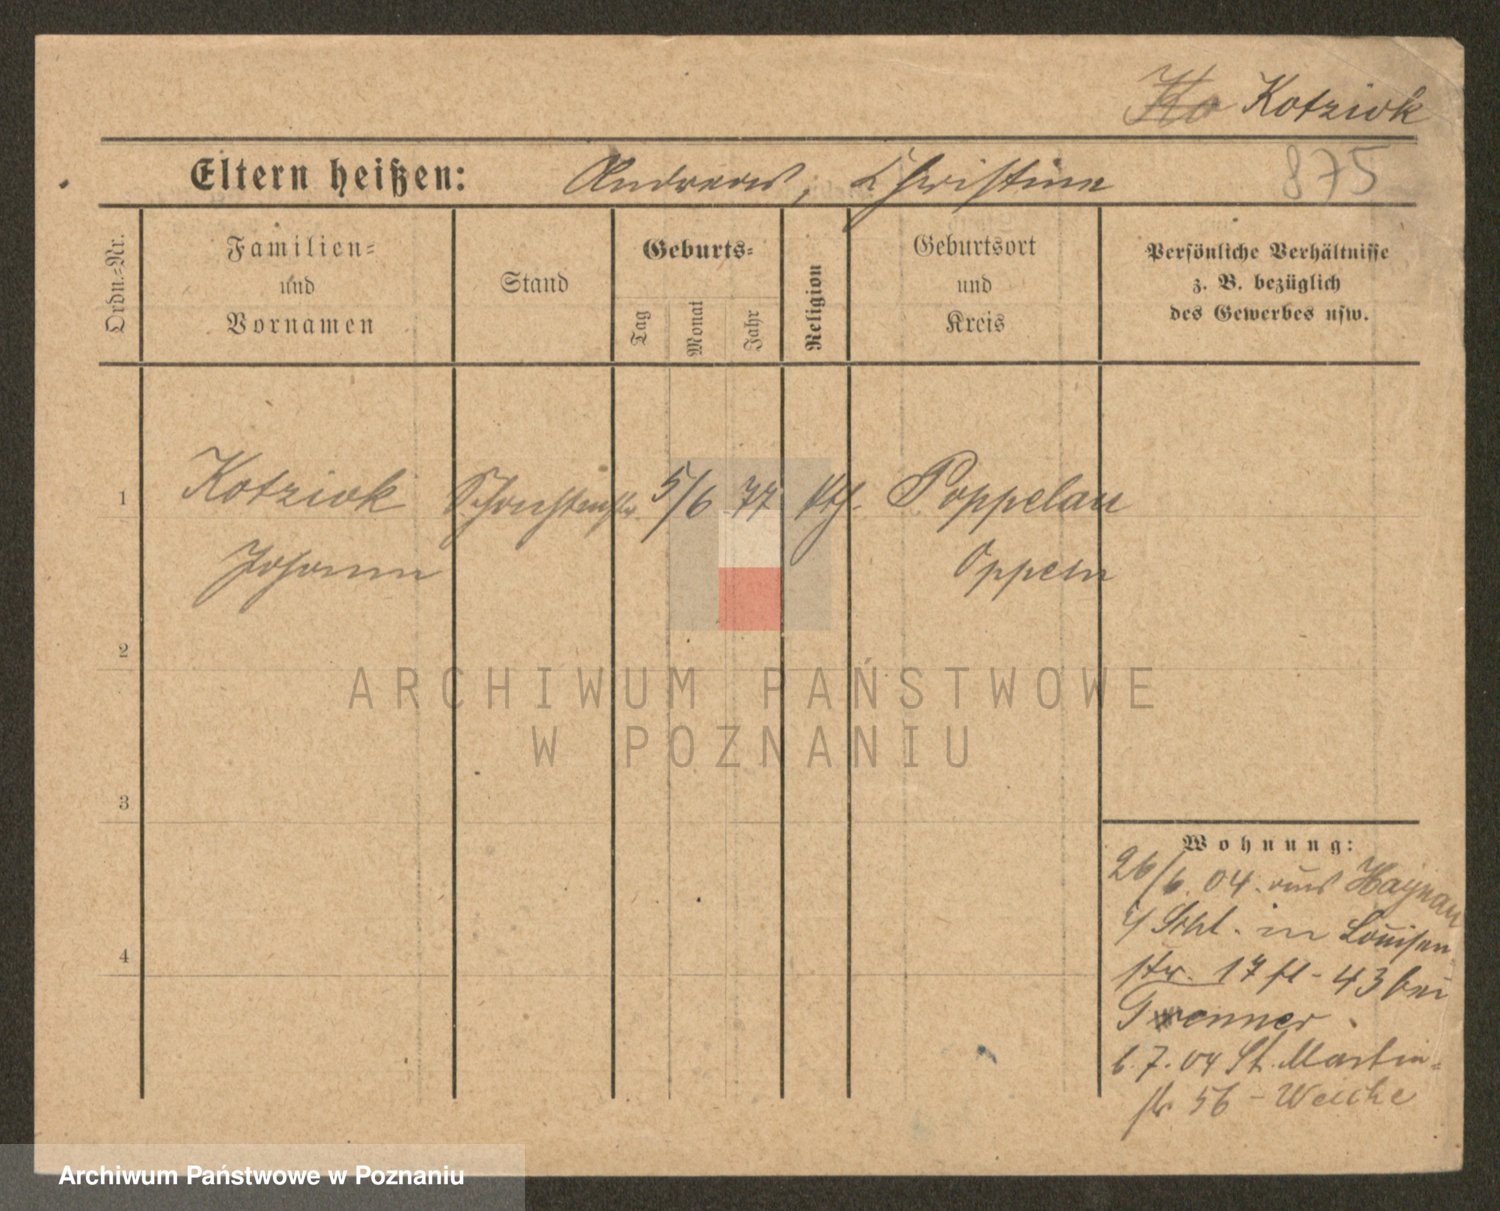 Ko Kotziok
Eltern heißen: Andreas, Christine
875
Ordn.-Nr.
Familien-
und
Vornamen
Stand
Geburts-
Tag
Monat
Jahr
Religion
Geburtsort
und
Kreis
Persönliche Verhältnisse
z. B. bezüglich
des Gewerbes usw.
1 Kotziok 5/6 77 kth. Poppelau
Johann Oppeln
2
3
4
Wohnung:
26/6. 04. aus Haynau
in Louisen
str. 17 43 bei
6.7.04 St. Martin-
str 56 -
ARCHIWUM PAŃSTWOWE
W POZNANIU
Archiwum Państwowe w Poznaniu